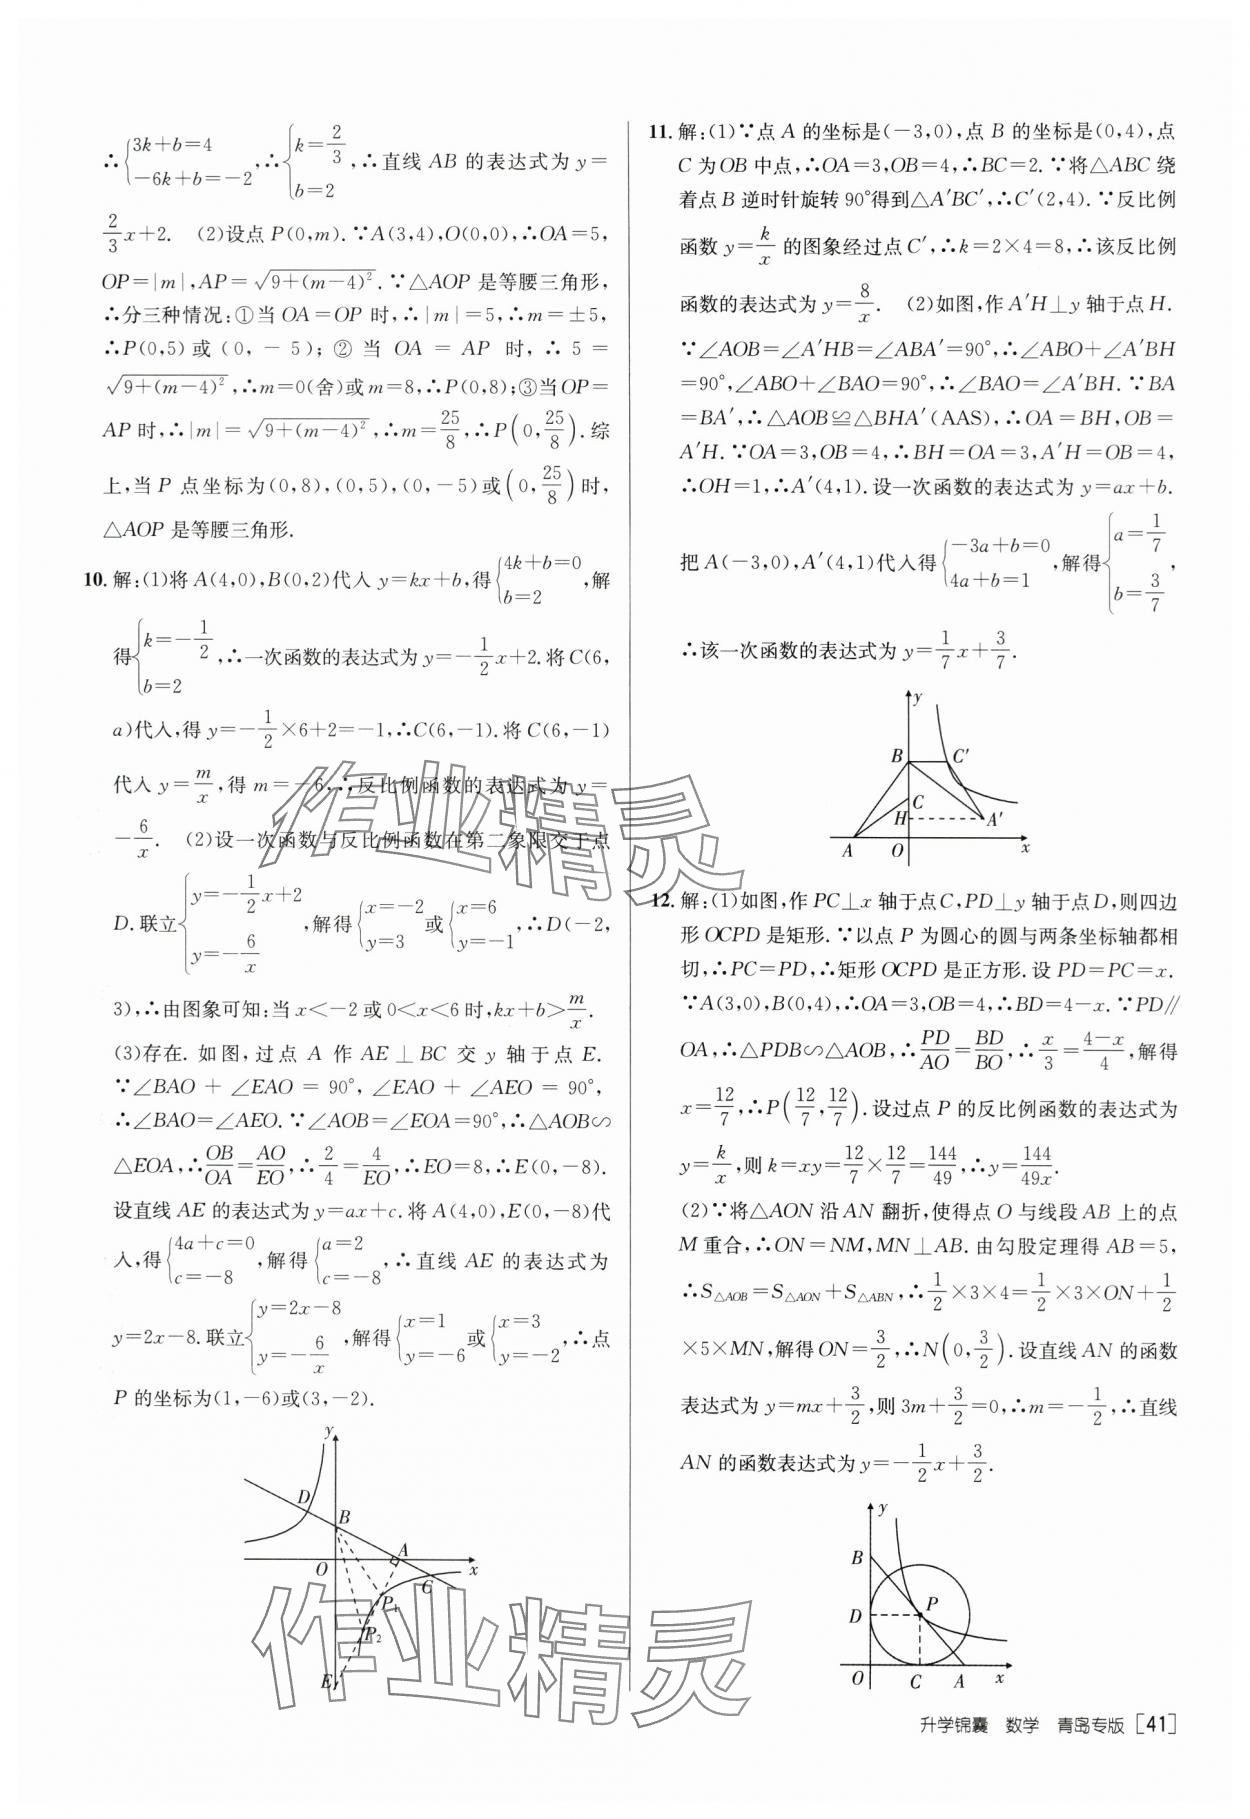 ∴{3k+b=4 −6k+b=−2,∴{k=2/3 b=2,∴直线 AB 的表达式为 y=
2/3x+2. (2)设点 P(0,m).∵A(3,4),O(0,0),∴OA=5,
OP=|m|,AP=√(9+(m−4)²).∵△AOP 是等腰三角形,
∴分三种情况:①当 OA=OP 时,∴|m|=5,∴m=±5,
∴P(0,5)或(0,−5);②当 OA=AP 时,∴5=
√(9+(m−4)²),∴m=0(舍)或m=8,∴P(0,8);③当OP=
AP 时,∴|m|=√(9+(m−4)²),∴m=25/8,∴P(0,25/8).综
上,当 P 点坐标为(0,8),(0,5),(0,−5)或(0,25/8)时,
△AOP 是等腰三角形.
10. 解:(1)将 A(4,0),B(0,2)代入 y=kx+b,得{4k+b=0 b=2,解
得{k=−1/2 b=2,∴一次函数的表达式为 y=−1/2x+2.将C(6,
a)代入,得 y=−1/2×6+2=−1,∴C(6,−1).将 C(6,−1)
代入 y=m/x,得 m=−6,∴反比例函数的表达式为 y=
−6/x. (2)设一次函数与反比例函数在第二象限交于点
D.联立{y=−1/2x+2 y=−6/x,解得{x=−2 y=3或{x=6 y=−1,∴D(−2,
3),∴由图象可知:当 x<−2 或 0<x<6 时,kx+b>m/x.
(3)存在. 如图,过点 A 作 AE⊥BC 交 y 轴于点 E.
∵∠BAO+∠EAO=90°,∠EAO+∠AEO=90°,
∴∠BAO=∠AEO.∵∠AOB=∠EOA=90°,∴△AOB∽
△EOA,∴OB/OA=AO/EO,∴2/4=4/EO,∴EO=8,∴E(0,−8).
设直线 AE 的表达式为 y=ax+c.将 A(4,0),E(0,−8)代
入,得{4a+c=0 c=−8,解得{a=2 c=−8,∴直线 AE 的表达式为
y=2x−8.联立{y=2x−8 y=−6/x,解得{x=1 y=−6或{x=3 y=−2,∴点
P 的坐标为(1,−6)或(3,−2).
y
D
B
A
O
x
C
P₁
P₂
E
11. 解:(1)∵点 A 的坐标是(−3,0),点 B 的坐标是(0,4),点
C 为 OB 中点,∴OA=3,OB=4,∴BC=2.∵将△ABC 绕
着点 B 逆时针旋转 90°得到△A′BC′,∴C′(2,4).∵反比例
函数 y=k/x 的图象经过点 C′,∴k=2×4=8,∴该反比例
函数的表达式为 y=8/x. (2)如图,作 A′H⊥y 轴于点 H.
∵∠AOB=∠A′HB=∠ABA′=90°,∴∠ABO+∠A′BH
=90°,∠ABO+∠BAO=90°,∴∠BAO=∠A′BH.∵BA
=BA′,∴△AOB≌△BHA′(AAS),∴OA=BH,OB=
A′H.∵OA=3,OB=4,∴BH=OA=3,A′H=OB=4,
∴OH=1,∴A′(4,1).设一次函数的表达式为 y=ax+b.
把 A(−3,0),A′(4,1)代入得{−3a+b=0 4a+b=1,解得{a=1/7 b=3/7,
∴该一次函数的表达式为 y=1/7x+3/7.
y
B
C′
C
H
A′
A
O
x
12. 解:(1)如图,作 PC⊥x 轴于点C,PD⊥y 轴于点 D,则四边
形 OCPD 是矩形.∵以点 P 为圆心的圆与两条坐标轴都相
切,∴PC=PD,∴矩形 OCPD 是正方形.设 PD=PC=x.
∵A(3,0),B(0,4),∴OA=3,OB=4,∴BD=4−x.∵PD∥
OA,∴△PDB∽△AOB,∴PD/AO=BD/BO,∴x/3=(4−x)/4,解得
x=12/7,∴P(12/7,12/7).设过点 P 的反比例函数的表达式为
y=k/x,则 k=xy=12/7×12/7=144/49,∴y=144/49x.
(2)∵将△AON 沿 AN 翻折,使得点 O 与线段 AB 上的点
M 重合,∴ON=NM,MN⊥AB.由勾股定理得 AB=5,
∴S△AOB=S△AON+S△ABN,∴1/2×3×4=1/2×3×ON+1/2
×5×MN,解得 ON=3/2,∴N(0,3/2).设直线 AN 的函数
表达式为 y=mx+3/2,则 3m+3/2=0,∴m=−1/2,∴直线
AN 的函数表达式为 y=−1/2x+3/2.
y
B
D
P
O
C
A
x
作业精灵
作业精灵
升学锦囊 数学 青岛专版 [41]